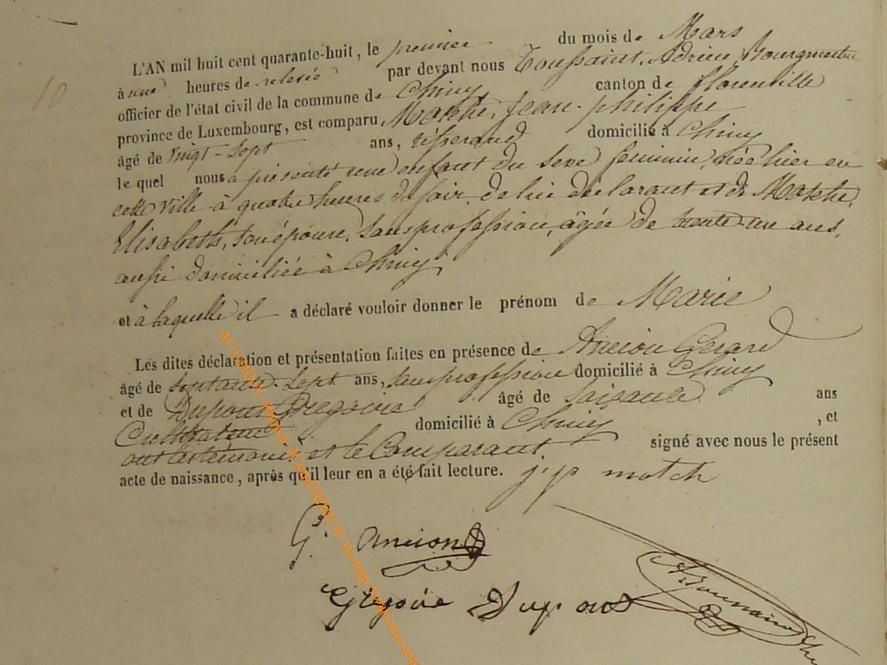 10
L'AN mil huit cent quarante-huit, le premier du mois de Mars
à une heures de relevée par devant nous Toussaint, Adrien, Bourgmestre
officier de l'état civil de la commune de Chiny canton de florenville
province de Luxembourg, est comparu Matche, Jean-philippe
âgé de vingt-sept ans, tisserand domicilié à Chiny
le quel nous a présenté une enfant du sexe féminin, née hier en
cette ville à quatre heures du soir, de lui déclarant et de Matche,
Elisabeth, son épouse, sans profession, âgée de trente-un ans,
aussi domiciliée à Chiny
et à laquelle il a déclaré vouloir donner le prénom de Marie
Les dites déclaration et présentation faites en présence de Ancion Gérard
âgé de septante-sept ans, sans profession domicilié à Chiny
et de Dupont Grégoire âgé de soixante ans
Cultivateur domicilié à Chiny, et
ont les témoins et le Comparant signé avec nous le présent
acte de naissance, après qu'il leur en a été fait lecture. j. p match
G. Ancion
Grégoire Dupont
A. Toussaint